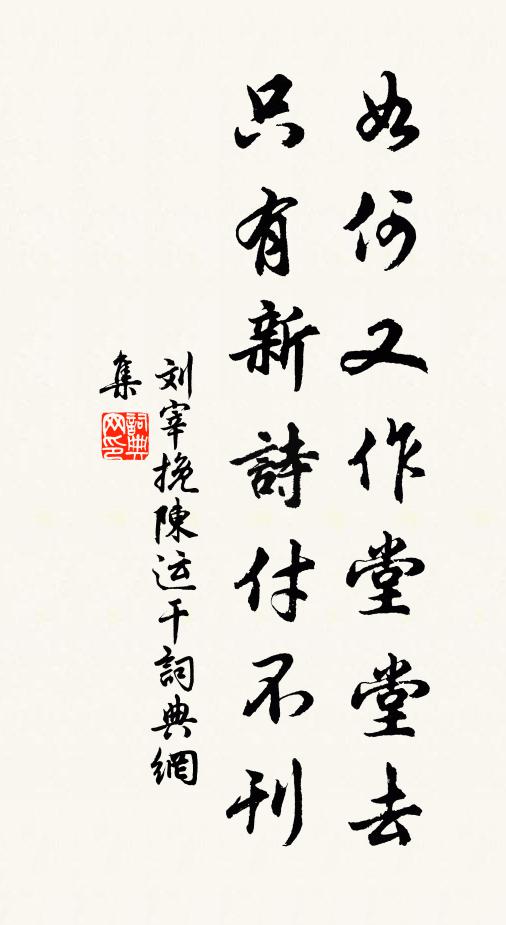 如何又作堂堂去
只有新詩付不刊
刘宰挽陳运干詞典網
集
詞典
网印